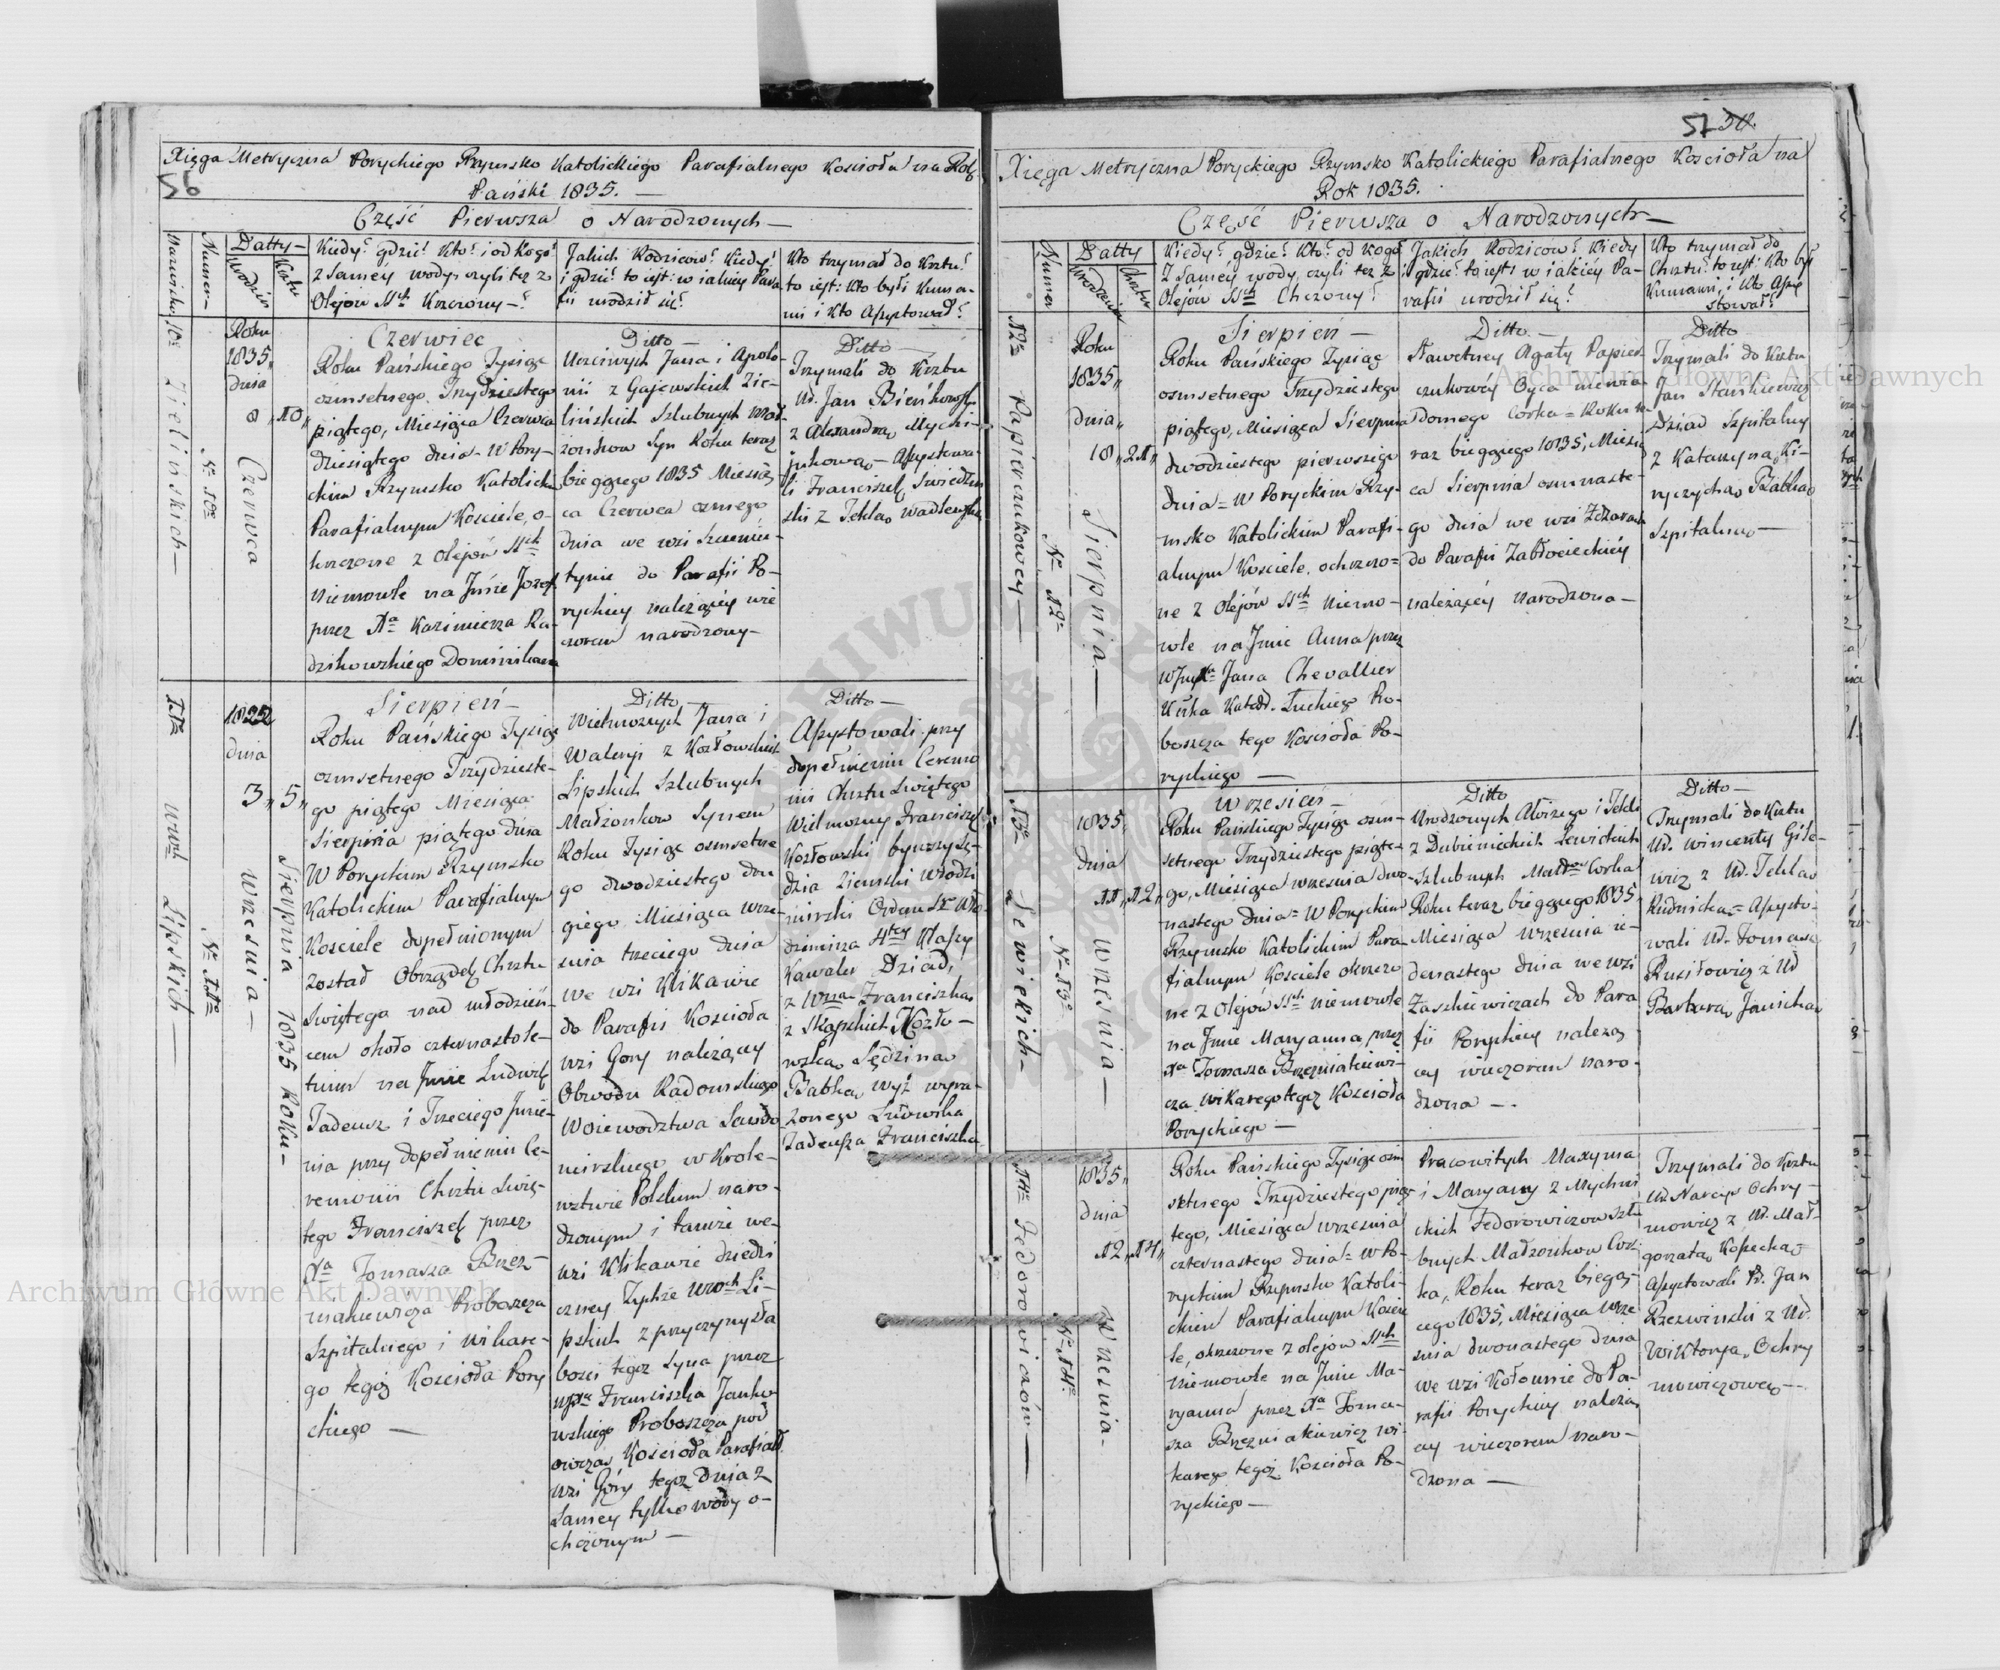 56
Xięga Metryczna Poryckiego Rzymsko Katolickiego Parafialnego Kościoła na Rok
Pański 1835. —
Część Pierwsza o Narodzonych —
Nazwisko
Numer
Datty
Urodzin
Krztu
Kiedy? gdzie? Kto? i od kogo?
z Samey wody czyli też z
Olejów SSch Krzczony —?
Jakich Rodziców? Kiedy?
i gdzie? to iest: w iakiey Para
fii urodził się?
Kto trzymał do Krztu?
to iest: Kto byli Kuma-
mi i kto Assystował?
10e Zielińskich —
Nr 10e
Roku
1835„
dnia
8 „ 10„
Czerwca
Czerwiec
Roku Pańskiego Tysiąc
osmsetnego Trzydziestego
piątego, Miesiąca Czerwca
dziesiątego dnia = W Pory-
ckim Rzymsko Katolickim
Parafialnym Kościele, o-
krzczone z Olejów SSch
Niemowle na Jmie Józef
przez Xa Kazimierza Ra-
dzikowskiego Dominikana
Ditto —
Uczciwych Jana i Apolo-
nii z Gajewskich Zie-
lińskich Szlubnych Mał-
żonków Syn Roku teraz
bieżącego 1835 Miesią
ca Czerwca osmego
dnia we wsi
tynie do Parafii Po-
ryckiey należącey wie
czorem narodzony —
Ditto —
Trzymali do Krztu
Ur. Jan Bieńkowski
z Alexandrą
Assystowa-
li Franciszek
ski z Teklą Wadlewską
11te Wnych Lipskich —
Nr 11te
1822
dnia
3„ 5„
Wrzesnia —
Sierpnia 1835 Roku —
Sierpień —
Roku Pańskiego Tysiąc
osmsetnego Trzydzieste-
go piątego Miesiąca
Sierpnia piątego dnia
W Poryckim Rzymsko
Katolickim Parafialnym
Kościele dopełnionym
został Obrządek Chrztu
Świętego nad młodzień-
cem około czternastole-
tnim na Jmie Ludwik
Tadeusz i Trzeciego Jmie-
nia przy dopełnieniu Ce-
remonii Chrztu Świę-
tego Franciszek przez
Xa Tomasza Brzez-
niakiewicza Proboszcza
Szpitalnego i Wikare-
go tegoż Kościoła Pory
ckiego —
Ditto —
Wielmożnych Jana i
Waleryi z Kozłowskich
Lipskich Szlubnych
Małżonków Synem
Roku Tysiąc osmsetne
go dwodziestego dru
giego Miesiąca Wrze-
snia trzeciego dnia
we wsi Klikawie
do Parafii Kościoła
wsi Gory należącey
Obwodu Radomskiego
Woiewodztwa Sando
mirskiego w Krole-
wstwie Polskim naro-
dzonym i tamże we-
wsi Klikawie dziedzi
czney Tychże Wnych Li-
pskich z przyczyny sła
bości tegoż Syna przez
WJXa Franciszka Janko
wskiego Proboszcza pod
owczas Kościoła Parafial.
wsi Góry tegoż dnia z
Samey tylko wody o-
chczonym —
Ditto —
Assystowali przy
dopełnieniu Ceremo
nii Chrztu Świętego
Wielmożny Franciszek
Kozłowski bywszy Sę-
dzia Ziemski Włodzi
mirski Orderu Sgo Wło-
dzimirza 4tey Klassy
Kawaler Dziad,
z Wną Franciszką
z Skąpskich Kozło-
wską Sędziną
Babką wyż wyra-
żonego Ludwika
Tadeusza Franciszka
57 50.
Xięga Metryczna Poryckiego Rzymsko Katolickiego Parafialnego Kościoła na
Rok 1835.
Część Pierwsza o Narodzonych —
Numer
Datty
Urodzenia
Chrztu
Kiedy? gdzie? Kto? od kogo?
z Samey wody czyli też z
Olejów SSch Chczony?
Jakich Rodziców? Kiedy
i gdzie? to iest w iakiey Pa-
rafii urodził się?
Kto trzymał do
Chrztu? to iest: Kto był
Kumami, i Kto Assy
stował?
12e Papierzukowey —
Nr 12e
Roku
1835„
dnia„
18„ 21„
Sierpnia —
Sierpień —
Roku Pańskiego Tysiąc
osmsetnego Trzydziestego
piątego, Miesiąca Sierpnia
dwodziestego pierwszego
dnia = W Poryckim Rzy-
msko Katolickim Parafi-
alnym Kościele, ochrzczo-
ne z Olejów SSch Niemo-
wle na Jmie Anna przez
WJXa Jana Chevallier
Katedr. Łuckiego Pro-
boszcza tego Kościoła Po-
ryckiego —
Ditto —
Sławetney Agaty Papier-
czukowéy Oyca niewia
domego Corka = Roku te
raz bieżącego 1835, Miesią
ca Sierpnia osmnaste-
go dnia we wsi Zdżarach
do Parafii Zabłocieckiéy
należącéy narodzona —
Ditto
Trzymali do Krztu
Jan Stankiewicz
Dziad Szpitalny
z Katarzyną Ki-
ryczychą Babką
Szpitalną —
13e Lewickich —
Nr 13e
1835„
dnia
11„ 12„
Wrzesnia —
Wrzesień —
Roku Pańskiego Tysiąc osm-
setnego Trzydziestego piąte-
go, Miesiąca Wrzesnia dwo-
nastego dnia = W Poryckim
Rzymsko Katolickim Para-
fialnym Kościele okrzczo
ne z Olejów SSch Niemowle
na Jmie Maryanna, przez
Xa Tomasza Brzezniakiewi-
cza Wikarego tegoż Kościoła
Poryckiego —
Ditto
Urodzonych Aloizego i Tekli
z Dubienieckich Lewickich
Szlubnych Małżów Corka
Roku teraz bieżącego 1835,
Miesiąca Wrzesnia ie-
denastego dnia we wsi
Zaszkiewiczach do Para
fii Poryckiey należą
cey wieczorem naro-
dzona —.
Ditto —
Trzymali do Krztu
Ur. Wincenty Gile-
wicz z Ur. Teklą
Rudnicką = Assysto-
wali Ur. Tomasz
Rusiłowicz z Ur
Barbarą Janicką
14e Fedorowiczów —
Nr 14e
1835„
dnia
12„ 14„
Wrzesnia —
Roku Pańskiego Tysiąc osm
setnego Trzydziestego pią-
tego, Miesiąca Wrzesnia
czternastego dnia = W Po-
ryckim Rzymsko Katoli-
ckim Parafialnym Koście
le, okrzczone z Olejów SSch
Niemowle na Jmie Ma-
ryanna przez Xa Toma-
sza Brzezniakiewicz Wi-
karego tegoż Kościoła Po-
ryckiego —
Pracowitych Maxyma
i Maryanny z
ckich Fedorowiczow Szlu
bnych Małżonkow Cor-
ka, Roku teraz bieżą-
cego 1835, Miesiąca Wrze
snia dwonastego dnia
we wsi Kołownie do Pa-
rafii Poryckiey należą
cey wieczorem naro-
dzona —
Trzymali do Krztu
Ur. Narcyz Ochry-
mowicz z Ur. Mał-
gorzatą Kopecką =
Assystowali Ur. Jan
Rzewinski z Ur.
Wiktoryą Ochry
mowiczową —
Archiwum Główne Akt Dawnych
Archiwum Główne Akt Dawnych